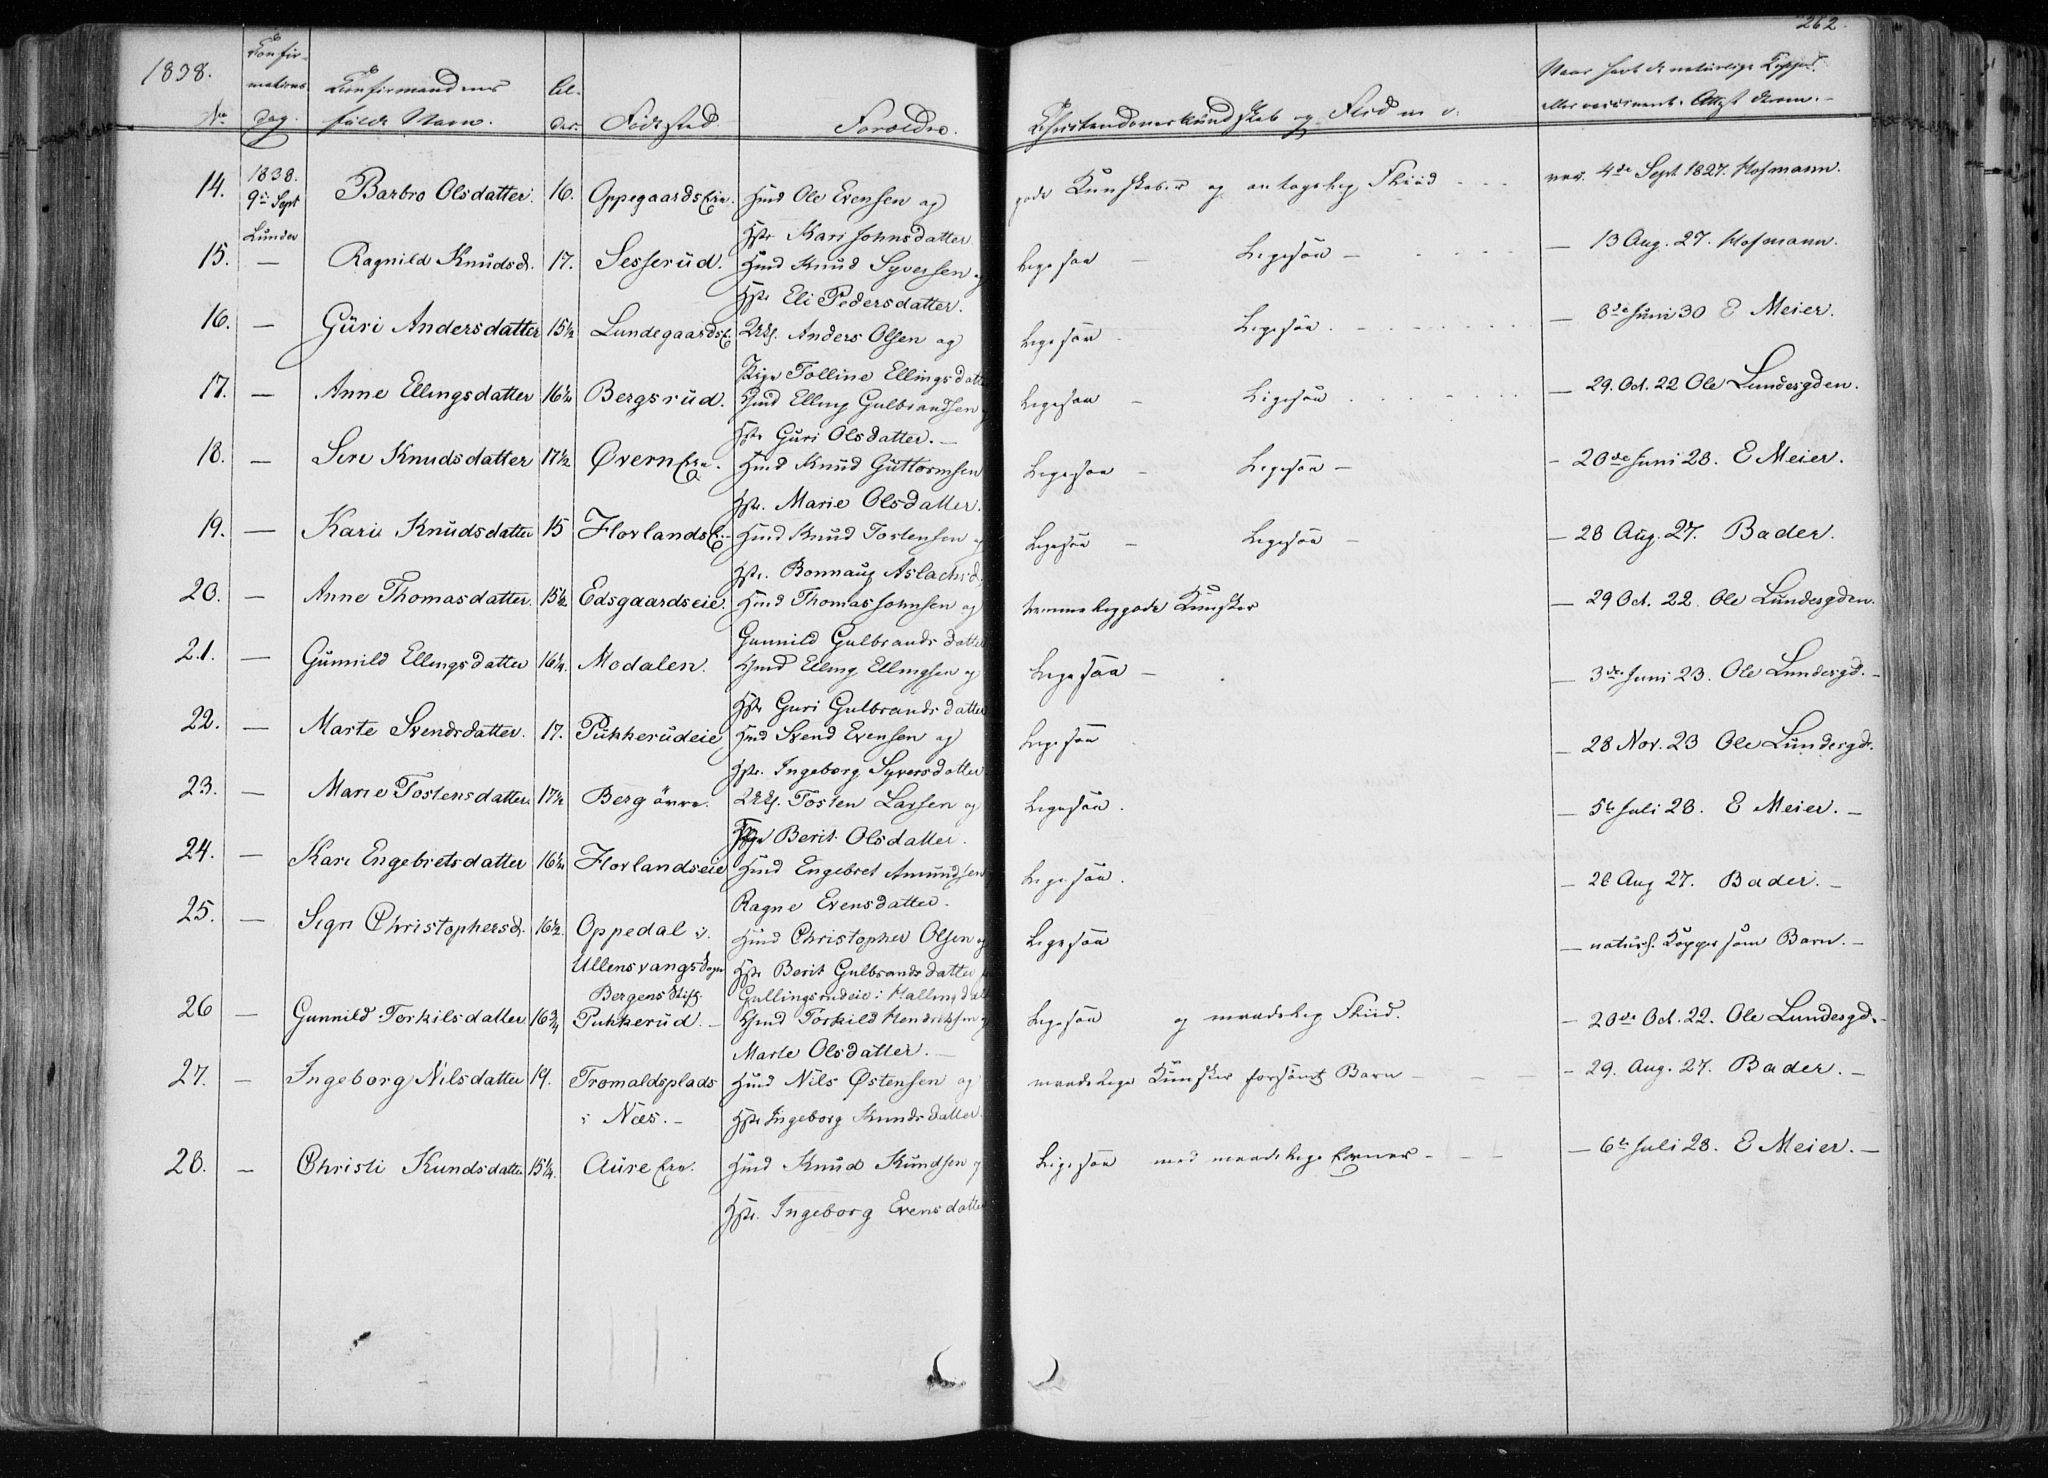 1838.
262.
No
Confirmations Dag.
Confirmandens fulde Navn.
Alder.
Fødested.
Forældre.
Christendomskundskab og Flid m. v.
Naar havt de naturlige Kopper eller vaccineret. Attest derom. –
14. 1838. 9de Sept Lunder Barbro Olsdatter. 16. Oppegaards Eie. Hmd Ole Evensen og Hstr Kari Johnsdatter gode Kunskaber og antagelig Fliid vac. 4de Sept. 1827. Hofmann.
15. — Ragnild Knudsd. 17. Sesserud. Hmd Knud Syversen og Hstr Eli Pedersdatter. Ligesaa – Ligesaa – — 13 Aug. 27. Hofmann.
16. — Guri Andersdatter 15½ Lundegaards E. Anders Olsen og Pige Tolline Ellingsdatter Ligesaa Ligesaa. — 8de Juni 30 E Meier.
17. — Anne Ellingsdatter 16¼ Bergsrud. Hmd Elling Gulbrandsen og Hstr Guri Olsdatter. — Ligesaa – Ligesaa — 29. Oct. 22 Ole Lundesgden.
18. — Siri Knudsdatter 17½ Øvern Eie. Hmd Knud Guttormsen Hstr. Marie Olsdatter. Ligesaa – Ligesaa – – 20de Juni 28. E Meier.
19. — Kari Knudsdatter 15 Florlands E. Hmd Knud Tostensen og Hstr. Bonnaug Aslachsd. Ligesaa – Ligesaa – — 28 Aug. 27. Bader.
20. — Anne Thomasdatter. 15½ Edsgaardseie. Hmd Thomas Johnsen og Gunnild Gulbrandsdatter temmelig gode Kunsker — 29 Oct. 22. Ole Lundesgden.
21. — Gunnild Ellingsdatter 16¼ Modalen. Hmd Elling Ellingsen og Hstr Guri Gulbrandsdatter Ligesaa – — 3de Juni 23. Ole Lundesgd. –
22. — Marte Svendsdatter. 17. Pukkerudeie Hmd Svend Evensen og Hstr. Ingeborg Syversdatter Ligesaa — 28 Nov. 23 Ole Lundesgd.
23. — Marie Tostensdatter. 17½ Berg övre. Tosten Larsen og Berit Olsdatter. Ligesaa. — 5te Juli 28. E Meier. –
24. — Kari Engebretsdatter 16¼ Florlandseie Hmd Engebret Amundsen Ragne Evensdatter. Ligesaa. – 28 Aug 27. Bader. –
25. — Sigri Christophersd. 16½. Oppedal i Ullensvangs Sogn Bergens Stift. Hmd Christopher Olsen og Hstr Berit Gulbrandsdatter Gullingsrudeie i Hallingdal Ligesaa – naturl. Kopper som Barn. –
26 — Gunnild Torkilsdatter 16¾ Pukkerud. – Hmd Torkild Hendriksen og Marte Olsdatter. — Ligesaa og maadelig Fliid. – 20de Oct. 22. Ole Lundesgd. –
27. – Ingeborg Nilsdatter 19. Tromaldsplads i Næs. – Hmd Nils Østensen og Hstr Ingeborg Knudsdatter. maadelige Kunsker forsömt Barn – 29. Aug. 27. Bader. –
28. – Christi Knudsdatter 15¼. Aure Eie. Hmd Knud Knudsen og Hstr. Ingeborg Evensdatter Ligesaa med maadelige Evner – — 6te Juli 28. E Meier. –